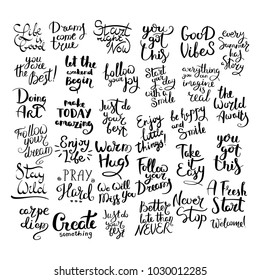 Life
is
Good
Dreams
come
true
Start
right
Now
you
got
this
GOOD
Vibes
Every
Summer
has a
Story
you
are the
Best!
let the
weekend
Begin
follow
your
joy
Start
your day
with a
Smile
everything
you can
imagine
is
real
the
World
Awaits
Doing
Art
make
TODAY
amazing
Just do
your
best
Enjoy
the
little
things!
be happy
and
Smile
Follow
your
dream
Enjoy
Life
Warm
Hugs
Follow
your
Dreams
Take
it
Easy
you
got
this
Stay
Wild
PRAY
Hard
We Will
Miss You
carpe
diem
Create
something
Just do
your
best
Better
late than
NEVER
Never
Stop
A Fresh
Start
Welcome!
shutterstock
IMAGE ID: 1030012285
www.shutterstock.com